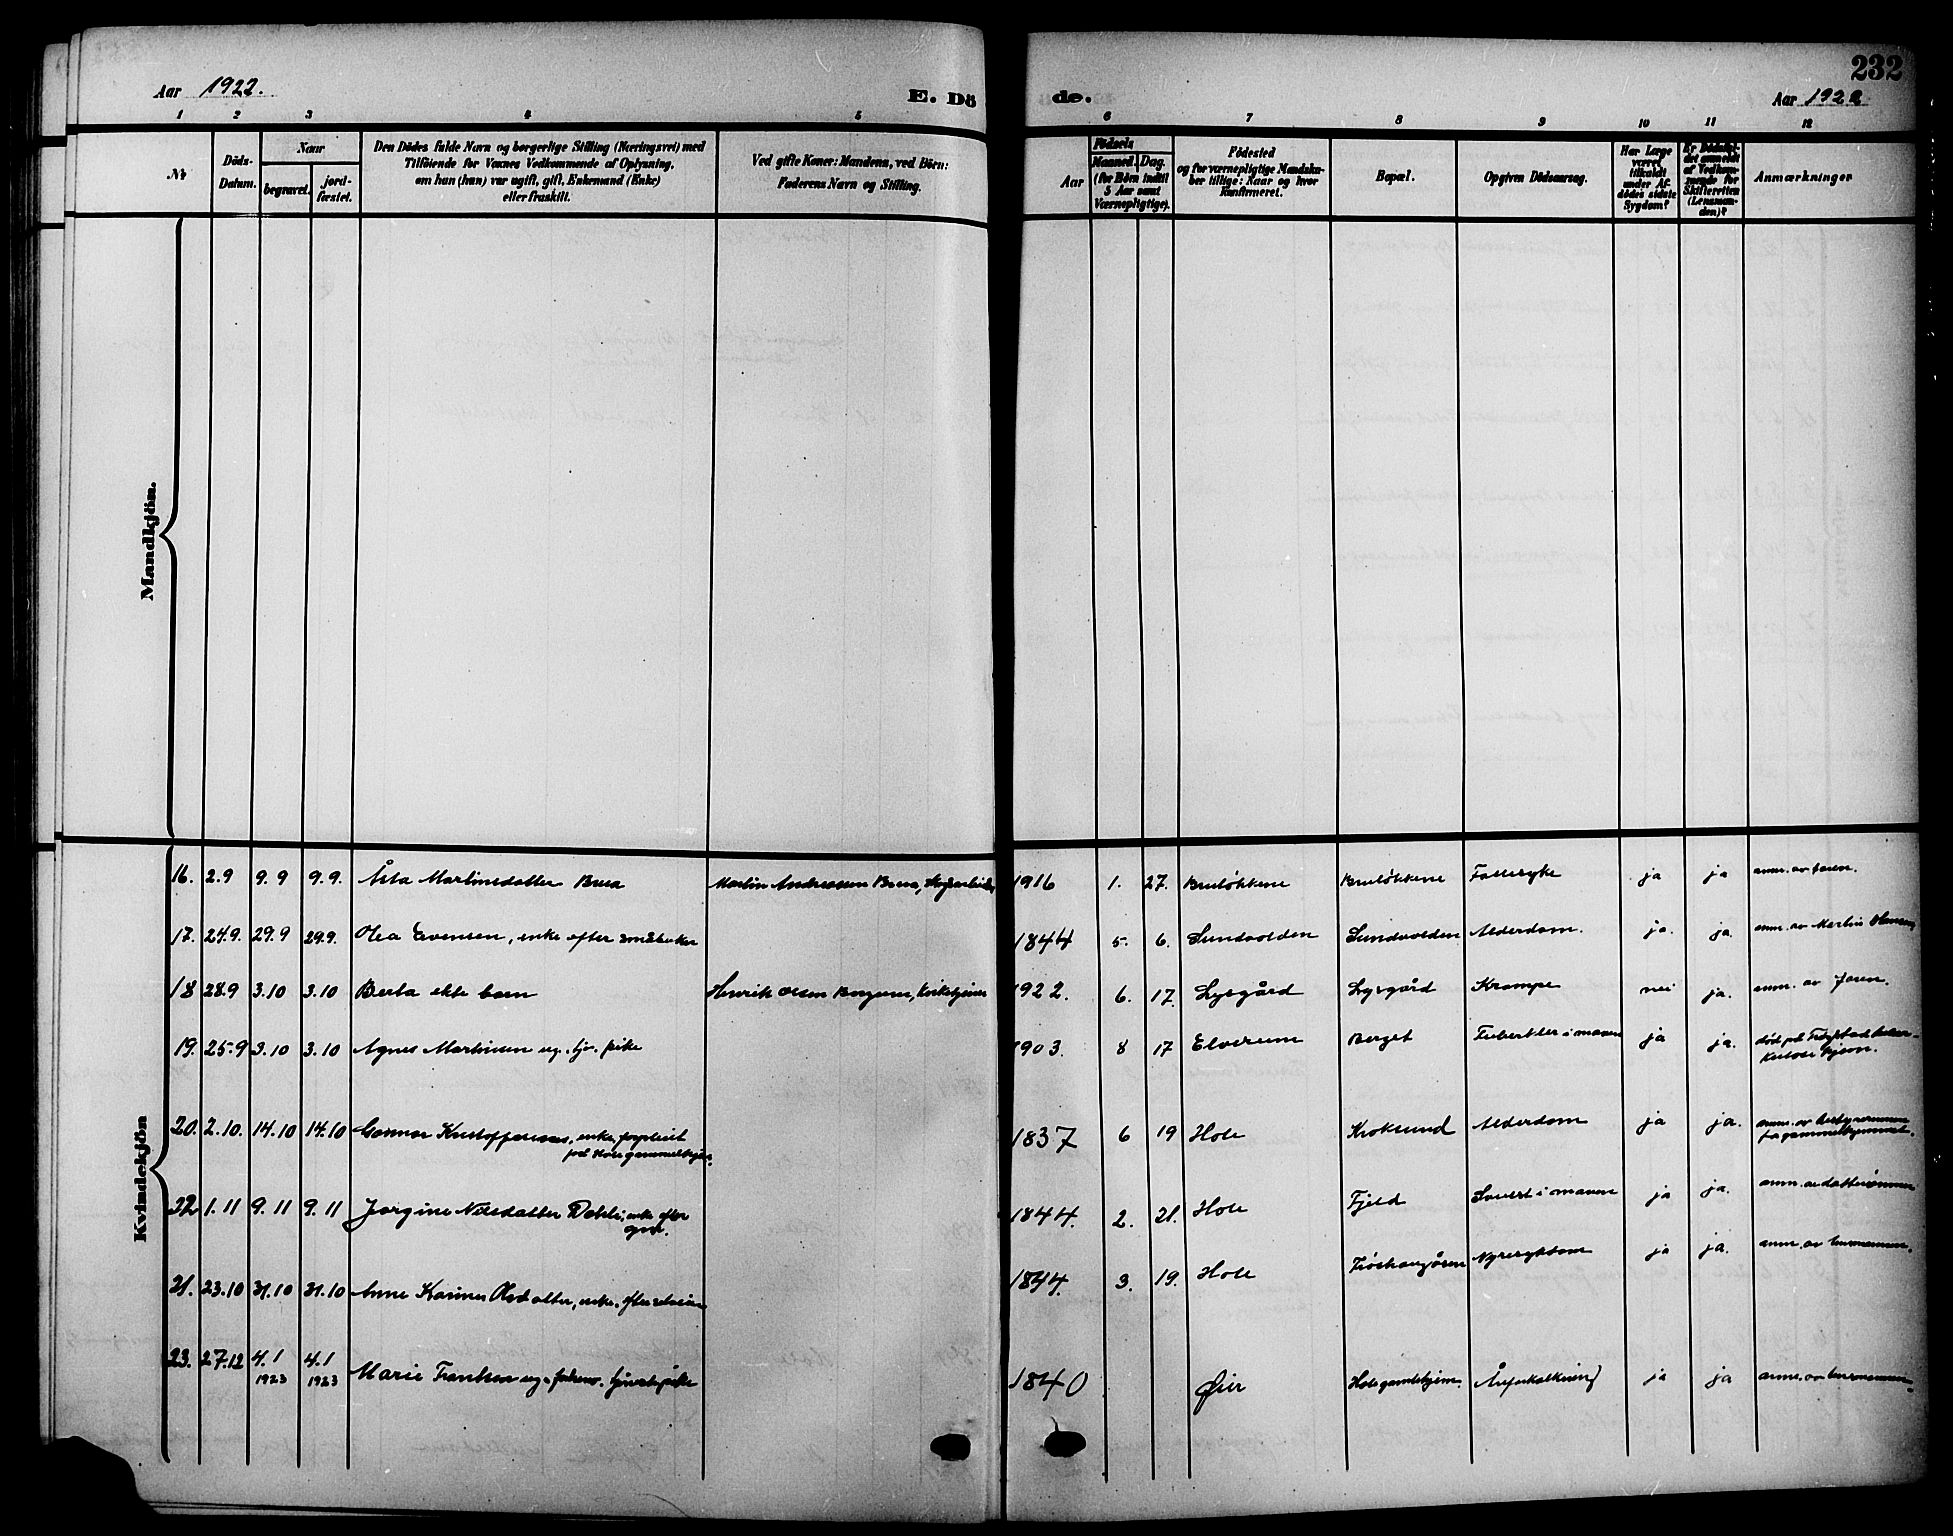 232
Aar 1922.
E. Dö
de.
Aar 1922
1 2 3 4 5
6 7 8 9 10 11 12
No
Döds-Datum.
Naar
begravet.
jord-fæstet.
Den Dödes fulde Navn og borgerlige Stilling (Næringsvei) med
Tilföiende for Voxnes Vedkommende af Oplysning,
om han (hun) var ugift, gift, Enkemand (Enke)
eller fraskilt.
Ved gifte Koner: Mandens, ved Börn:
Faderens Navn og Stilling.
Födsels
Aar
Maaned. Dag.
(for Börn indtil
5 Aar samt
Værnepligtige).
Födested
og for værnepligtige Mandska-
ber tillige: Naar og hvor
konfirmeret.
Bopæl.
Opgiven Dödsaarsag.
Har Læge
været
tilkaldt
under Af-
dödes sidste
Sygdom?
Er Dödsfal-
det anmeldt
af Vedkom-
mende for
Skifteretten
(Lensman-
den)?
Anmærkninger
Mandkjön.
Kvindekjön
16. 2.9 9.9 9.9. Åsta Martinsdatter Brua Martin Andreassen Brua, 1916 1. 27. Bruløkkene Bruløkkene Fallesyke ja ja anm. av faren.
17. 24.9. 29.9 29.9. Olea Evensen, enke efter småbruker 1844 5. 6. Sundvolden Sundvolden Alderdom. ja. ja. anm. av Martin Hansen
18 28.9 3.10 3.10 Berta ekte barn Henrik Olsen Borgerud, kirketjener 1922. 6. 17. Lysgård Lysgård Krampe nei ja. anm. av faren.
19. 25.9 3.10 3.10 Agnes Martinsen ug. tj. pike 1903. 8 17 Elverum Berget Tuberkler i maven ja ja. død på
hjem.
20. 2.10. 14.10 14.10 Gunnor Kristoffersen, enke, forpleiet
på Hole gammelhjem. 1837 6 19 Hole Kroksund Alderdom ja ja. anm. av bestyrerinnen
fra gammelhjemmet.
22 1.11 9.11 9.11 Jørgine Nilsdatter Dæhli, enke efter
grdr. 1844. 2. 21. Hole Fjeld Svulst i maven ja ja. anm. av
21. 23.10 31.10 31.10 Anne Karine Olsdatter, enke efter selveier 1844. 3. 19. Hole Nyresygdom ja ja. anm. av lensmannen.
23. 27.12 4.1
1923 4.1
1923 Marie Frantsen ug. tjenestepike 1840 Øier Hole gamlehjem. Åreforkalkning ja ja anm. av lensmannen.